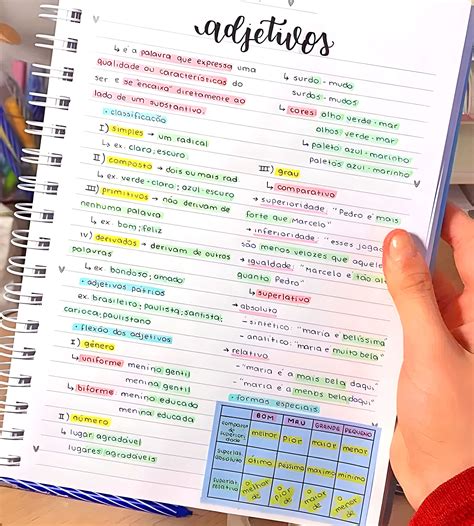 adjetivos
↳ é a palavra que expressa uma
qualidade ou característica do
ser e se "encaixa" diretamente ao
lado de um substantivo.
• classificação
I) simples → um radical
↳ ex. claro; escuro
II) composto → dois ou mais rad
↳ ex. verde-claro; azul-escuro
III) primitivos → não derivam de
nenhuma palavra
↳ ex. bom; feliz
IV) derivados → derivam de outros
palavras
↳ ex. bondoso; amado
• adjetivos pátrios
ex. brasileiro; paulista; santista;
carioca; paulistano
• flexão dos adjetivos
I) gênero
↳ uniforme menino gentil
menina gentil
↳ biforme menino educado
menina educada
II) número
↳ lugar agradável
lugares agradáveis
↳ surdo-mudo
surdos-mudos
↳ cores: olho verde-mar
olhos verde-mar
paletó azul-marinho
paletós azul-marinho
III) grau
↳ comparativo
→ superioridade: "Pedro é mais
forte que Marcelo"
→ inferioridade: "esses joga
são menos velozes que aquele
→ igualdade: "Marcelo é tão al
quanto Pedro"
↳ superlativo
→ absoluto
- sintético: "maria é belíssima
- analítico: "maria é muito bela"
→ relativo
- "maria é a mais bela daqui"
- "maria é a menos bela daqui"
• formas especiais
BOM MAU GRANDE PEQUENO
comparat. de superiori dade melhor pior maior menor
superlat. absoluto ótimo péssimo máximo mínimo
superlat. relativo o melhor de o pior de o maior de o menor de